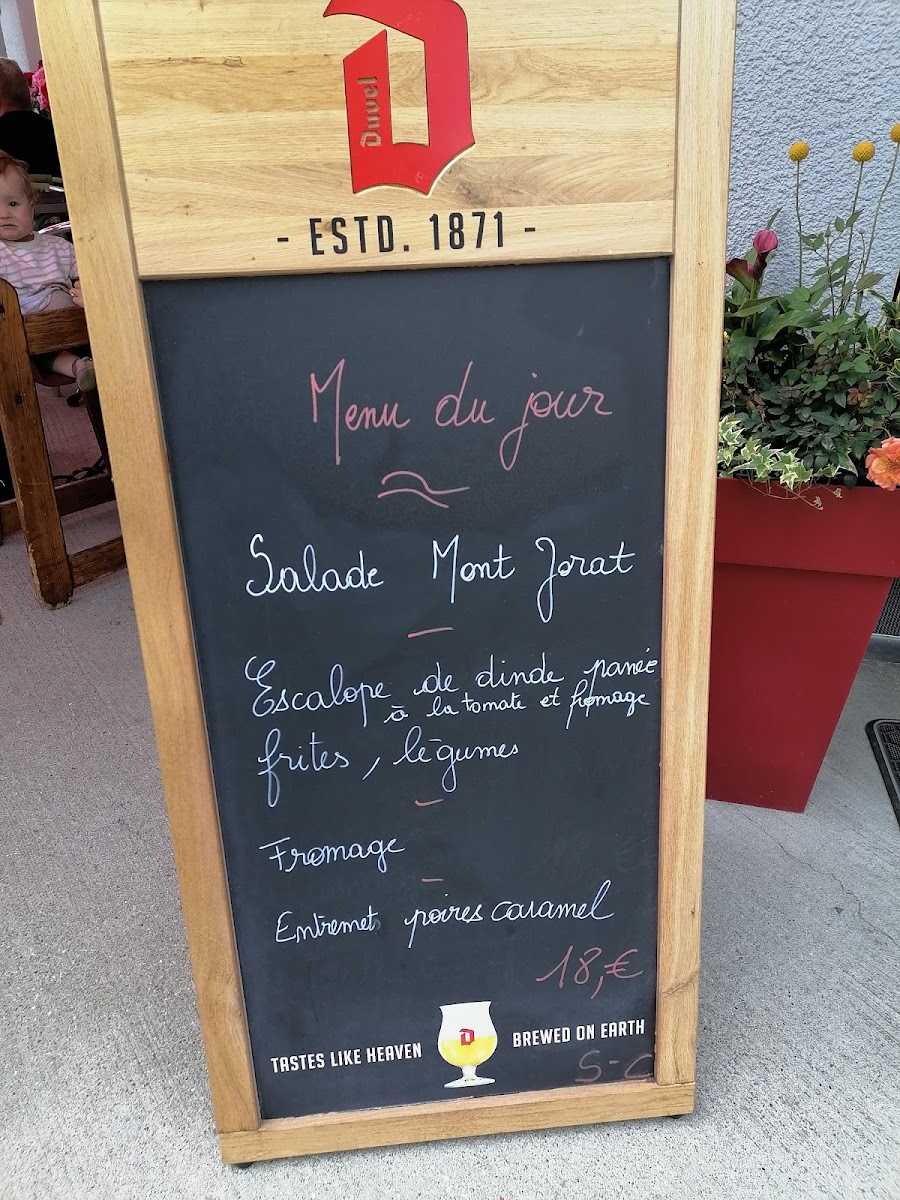 Duvel
- ESTD. 1871 -
Menu du jour
Salade Mont Jorat
Escalope de dinde panée
à la tomate et fromage
frites, légumes
Fromage
Entremet poires caramel
18,€
TASTES LIKE HEAVEN BREWED ON EARTH
S-C